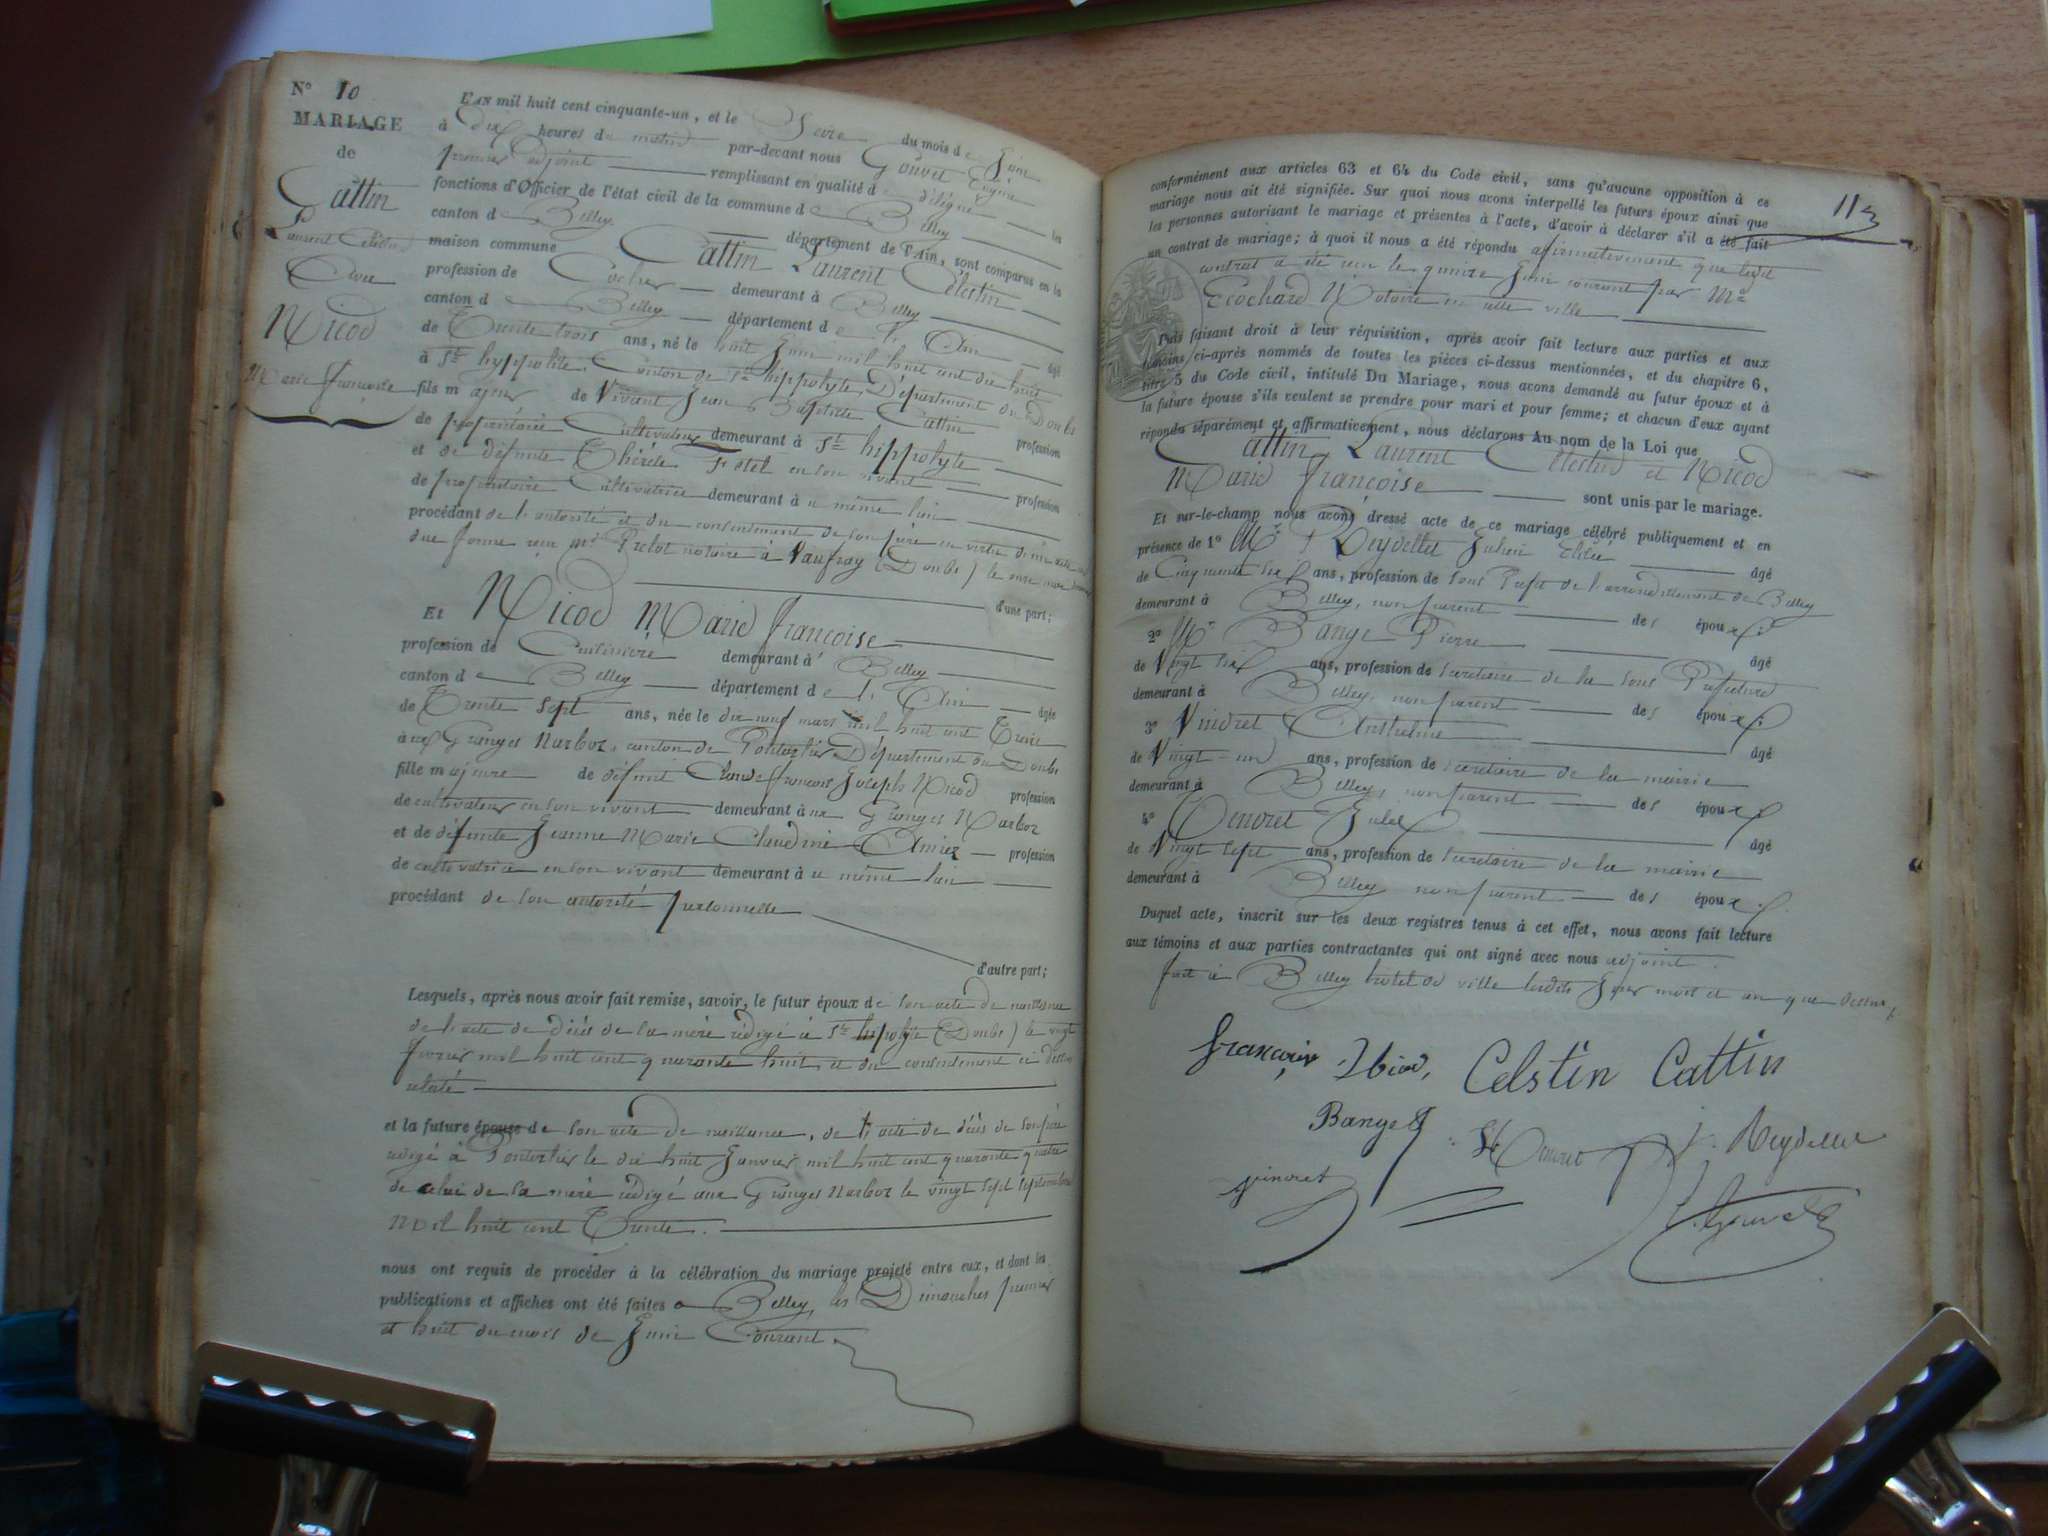 N° 10
MARIAGE
de
Cattin
Laurent Célestin
Avec
Nicod
Marie françoise
L'AN mil huit cent cinquante-un, et le Seize du mois de Juin
à Dix heures du matin par-devant nous Gouvet Eugène
premier adjoint remplissant en qualité de délégué les
fonctions d'Officier de l'état civil de la commune de Belley
canton de Belley département de l'Ain, sont comparus en la
maison commune Cattin Laurent Célestin
profession de Cocher demeurant à Belley
canton de Belley département de l'Ain âgé
de Trente trois ans, né le huit Juin mil huit cent dix huit
à Ste hyppolite, Canton de Ste hippolyte, Département du Doubs
fils majeur de Vivant Jean Baptiste Cattin profession
de propriétaire Cultivateur demeurant à Ste hippolyte
et de défunte Thérèse en son vivant profession
de propriétaire Cultivatrice demeurant à même lieu
procédant de l'autorité et du consentement de son père en vertu d'un acte en
due forme reçu Me Prelot notaire à Vaufrey (Doubs) le onze mai
d'une part;
Et Nicod Marie françoise
profession de Cuisinière demeurant à Belley
canton de Belley département de l'Ain âgée
de Trente sept ans, née le dix neuf mars mil huit cent Treize
aux Granges Narboz, canton de Pontarlier Département du Doubs
fille majeure de défunt Claude françois Joseph Nicod profession
de cultivateur en son vivant demeurant aux Granges Narboz
et de défunte Jeanne Marie Claudine Amiez profession
de cultivatrice en son vivant demeurant à même lieu
procédant de son autorité personnelle
d'autre part;
Lesquels, après nous avoir fait remise, savoir, le futur époux de son acte de naissance
de l'acte de décès de sa mère rédigé à Ste hippolyte (Doubs) le vingt
février mil huit cent quarante huit, et du consentement ci dessus
relaté
et la future épouse de son acte de naissance, de l'acte de décès de son père
rédigé à Pontarlier le dix huit Janvier mil huit cent quarante quatre
de celui de sa mère rédigé aux Granges Narboz le vingt sept septembre
Mil huit cent Trente.
nous ont requis de procéder à la célébration du mariage projeté entre eux, et dont les
publications et affiches ont été faites à Belley, les Dimanches premier
et huit du mois de Juin Courant
113
conformément aux articles 63 et 64 du Code civil, sans qu'aucune opposition à ce
mariage nous ait été signifiée. Sur quoi nous avons interpellé les futurs époux ainsi que
les personnes autorisant le mariage et présentes à l'acte, d'avoir à déclarer s'il a été fait
un contrat de mariage; à quoi il nous a été répondu affirmativement que ledit
contrat a été reçu le quinze Juin courant par Me
Ecochard Notaire en cette ville
Puis faisant droit à leur réquisition, après avoir fait lecture aux parties et aux
témoins ci-après nommés de toutes les pièces ci-dessus mentionnées, et du chapitre 6,
titre 5 du Code civil, intitulé Du Mariage, nous avons demandé au futur époux et à
la future épouse s'ils veulent se prendre pour mari et pour femme; et chacun d'eux ayant
répondu séparément et affirmativement, nous déclarons Au nom de la Loi que
Cattin Laurent Célestin et Nicod
Marie françoise sont unis par le mariage.
Et sur-le-champ nous avons dressé acte de ce mariage célébré publiquement et en
présence de 1° Mr Reydellet Julien âgé
de Cinquante six ans, profession de Sous Préfet de l'arrondissement de Belley
demeurant à Belley, non parent des époux;
2° Mr Bange Pierre âgé
de Vingt six ans, profession de Secrétaire de la Sous Préfecture
demeurant à Belley, non parent des époux;
3° Vindret Anthelme âgé
de Vingt-un ans, profession de Secrétaire de la mairie
demeurant à Belley, non parent des époux
4° âgé
de Vingt sept ans, profession de Secrétaire de la mairie
demeurant à Belley non parent des époux.
Duquel acte, inscrit sur les deux registres tenus à cet effet, nous avons fait lecture
aux témoins et aux parties contractantes qui ont signé avec nous adjoint.
fait à Belley hotel de ville lesdits Jour mois et an que dessus,
françoise Celstin Cattin
Bange J. Reydellet
Vindret E. Gouvet